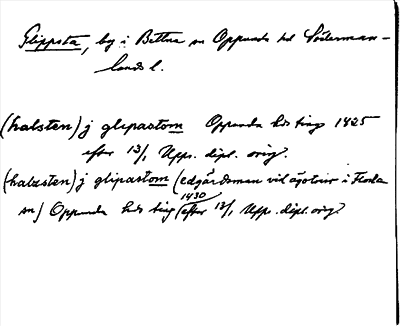 Glippsta, by i Bettna sn Oppunda hd Söderman-
lands l.
(halsten) j glipastom Oppunda hds ting 1425
efter 13/1 Upps. dipl. orig.
(halzsten) j glipastom (edgärdsman vid ägotvist i Floda
sn) Oppunda hds ting 1430 (efter 13/1, Upps. dipl. orig.